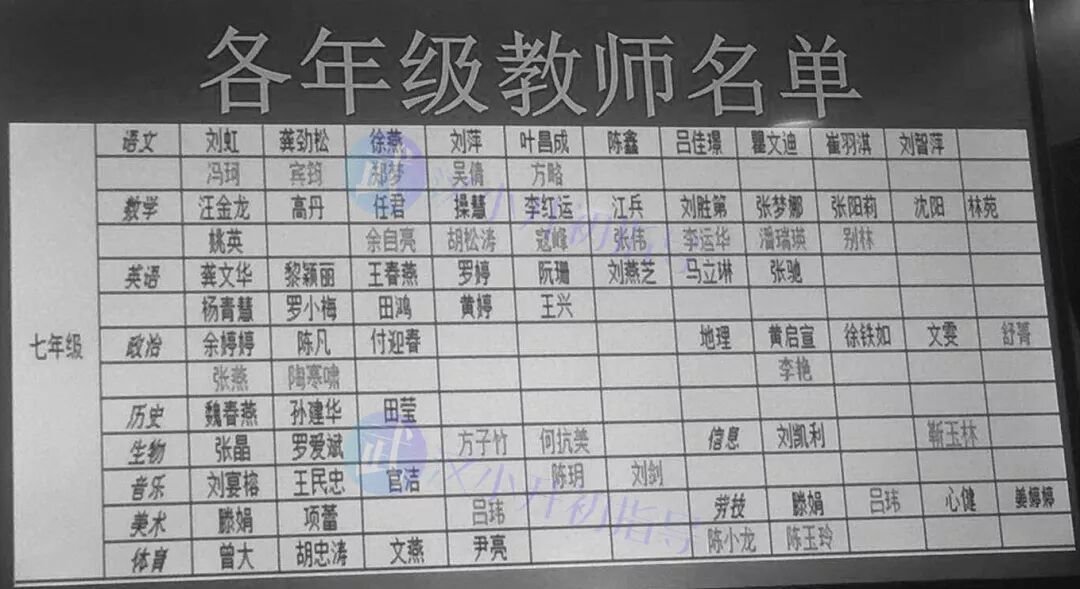 各年级教师名单
语文 刘虹 龚劲松 徐燕 刘萍 叶昌成 陈鑫 吕佳璟 瞿文迪 崔羽淇 刘智萍
冯珂 宾筠 郑梦 吴倩 方略
数学 汪金龙 高丹 任君 操慧 李红运 江兵 刘胜第 张梦娜 张阳莉 沈阳 林苑
姚英 余自亮 胡松涛 寇峰 张伟 李运华 潘瑞瑛 别林
英语 龚文华 黎颖丽 王春燕 罗婷 阮珊 刘燕芝 马立琳 张驰
杨青慧 罗小梅 田鸿 黄婷 王兴
七年级 政治 余婷婷 陈凡 付迎春 地理 黄启宣 徐铁如 文雯 舒菁
张燕 陶寒啸 李艳
历史 魏春燕 孙建华 田莹
生物 张晶 罗爱斌 方子竹 何抗美 信息 刘凯利 靳玉林
音乐 刘宴榕 王民忠 官洁 陈玥 刘剑
美术 滕娟 项蕾 吕玮 劳技 滕娟 吕玮 心健 姜婷婷
体育 曾大 胡忠涛 文燕 尹亮 陈小龙 陈玉玲
武汉小升初指导
武汉小升初指导